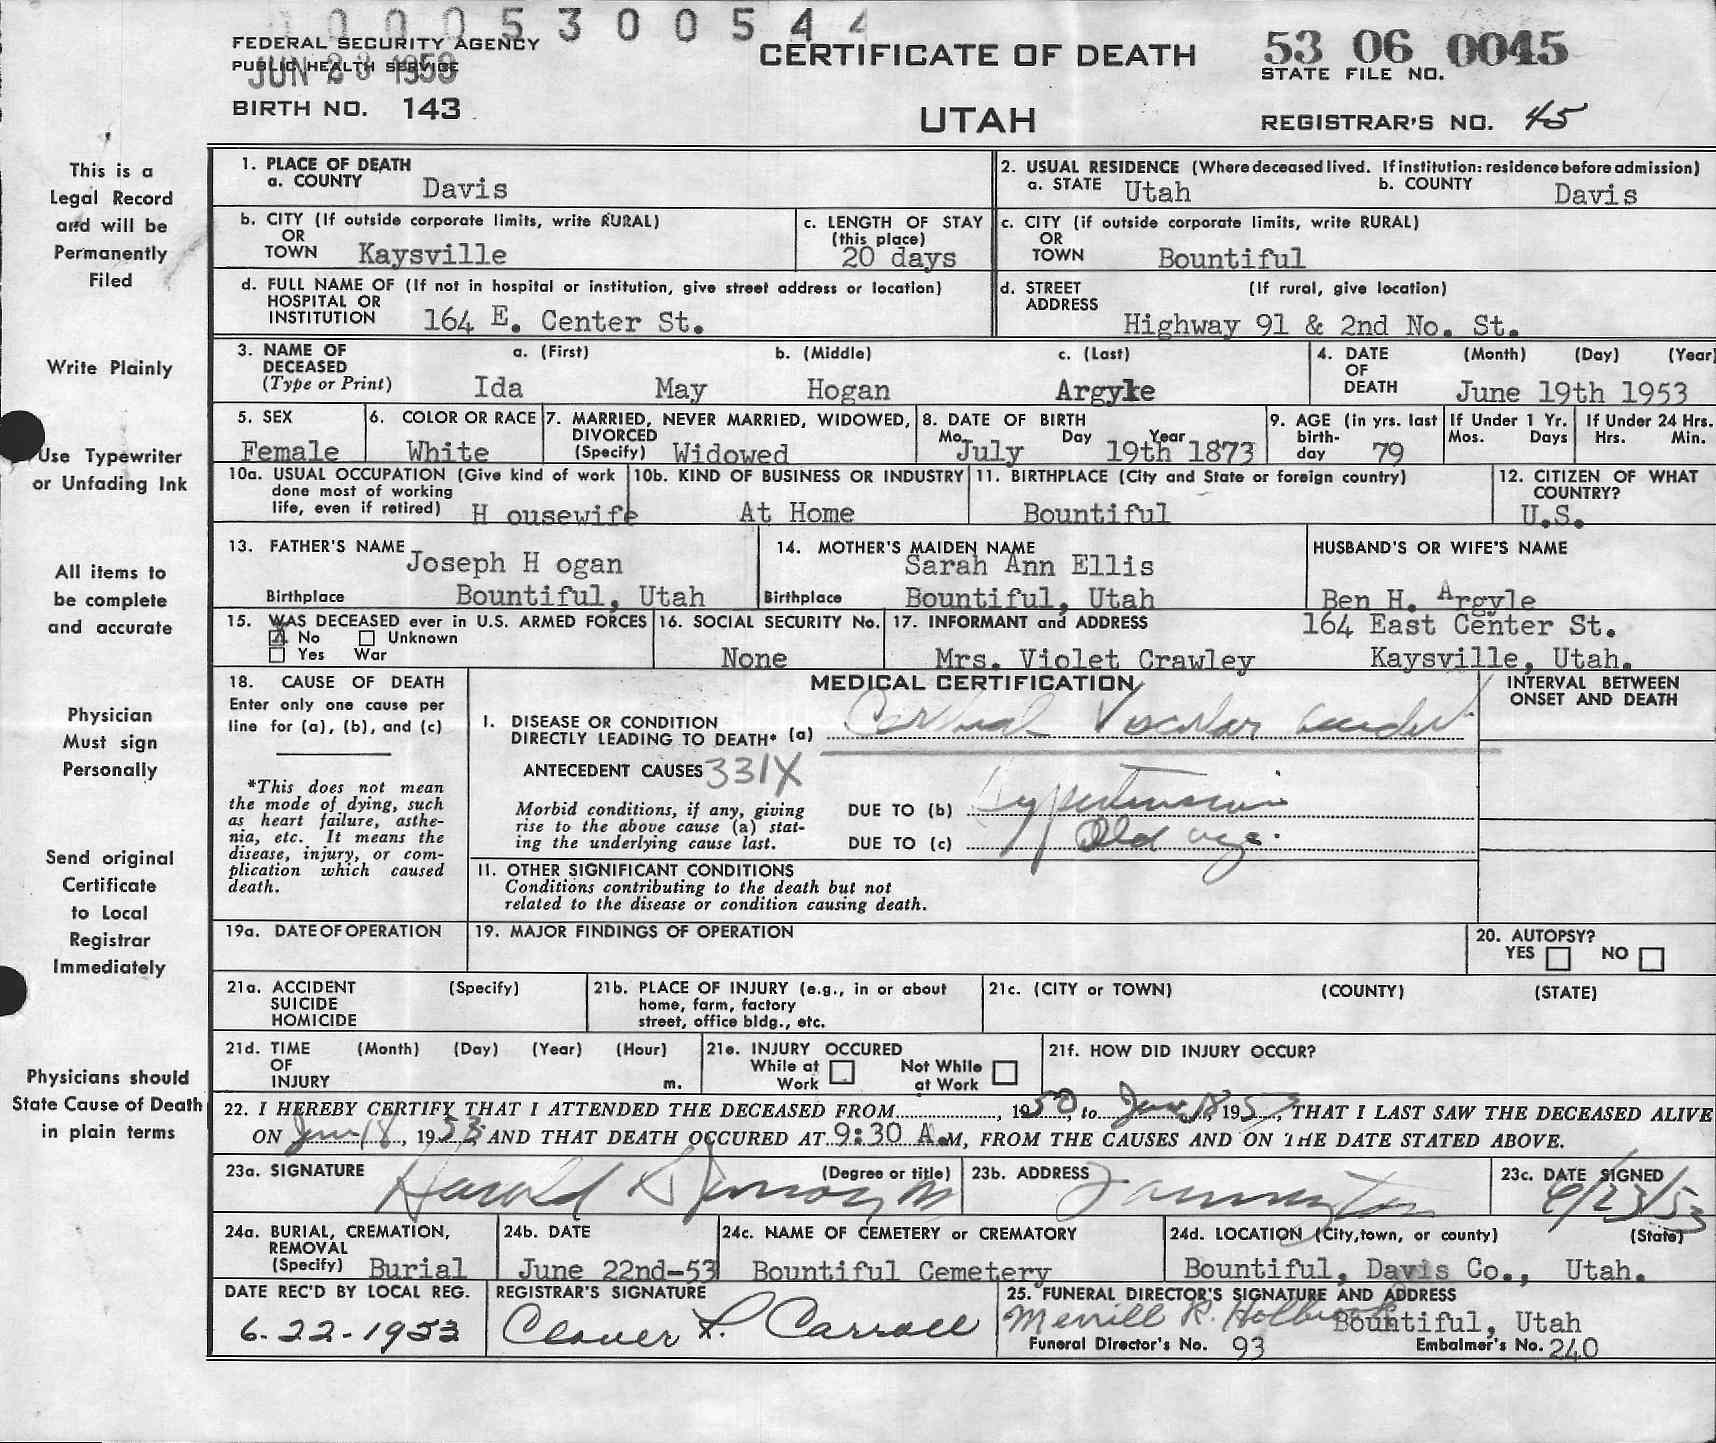 0005300544
FEDERAL SECURITY AGENCY
PUBLIC HEALTH SERVICE
JUN 23 1953
BIRTH NO. 143
CERTIFICATE OF DEATH
UTAH
53 06 0045
STATE FILE NO.
REGISTRAR'S NO. 45
This is a
Legal Record
and will be
Permanently
Filed
Write Plainly
Use Typewriter
or Unfading Ink
All items to
be complete
and accurate
Physician
Must sign
Personally
Send original
Certificate
to Local
Registrar
Immediately
Physicians should
State Cause of Death
in plain terms
1. PLACE OF DEATH
a. COUNTY Davis
2. USUAL RESIDENCE (Where deceased lived. If institution: residence before admission)
a. STATE Utah b. COUNTY Davis
b. CITY (If outside corporate limits, write RURAL)
OR
TOWN Kaysville
c. LENGTH OF STAY
(this place)
20 days
c. CITY (if outside corporate limits, write RURAL)
OR
TOWN Bountiful
d. FULL NAME OF (If not in hospital or institution, give street address or location)
HOSPITAL OR
INSTITUTION 164 E. Center St.
d. STREET (If rural, give location)
ADDRESS
Highway 91 & 2nd No. St.
3. NAME OF a. (First) b. (Middle) c. (Last)
DECEASED
(Type or Print) Ida May Hogan Argyle
4. DATE (Month) (Day) (Year)
OF
DEATH June 19th 1953
5. SEX
Female
6. COLOR OR RACE
White
7. MARRIED, NEVER MARRIED, WIDOWED,
DIVORCED
(Specify) Widowed
8. DATE OF BIRTH
Mo. Day Year
July 19th 1873
9. AGE (in yrs. last
birth-
day 79
If Under 1 Yr.
Mos. Days
If Under 24 Hrs.
Hrs. Min.
10a. USUAL OCCUPATION (Give kind of work
done most of working
life, even if retired) H ousewife
10b. KIND OF BUSINESS OR INDUSTRY
At Home
11. BIRTHPLACE (City and State or foreign country)
Bountiful
12. CITIZEN OF WHAT
COUNTRY?
U.S.
13. FATHER'S NAME Joseph H ogan
Birthplace Bountiful, Utah
14. MOTHER'S MAIDEN NAME
Sarah Ann Ellis
Birthplace Bountiful, Utah
HUSBAND'S OR WIFE'S NAME
Ben H. Argyle
15. WAS DECEASED ever in U.S. ARMED FORCES
X No Unknown
Yes War
16. SOCIAL SECURITY No.
None
17. INFORMANT and ADDRESS 164 East Center St.
Mrs. Violet Crawley Kaysville, Utah.
18. CAUSE OF DEATH
Enter only one cause per
line for (a), (b), and (c)
*This does not mean
the mode of dying, such
as heart failure, asthe-
nia, etc. It means the
disease, injury, or com-
plication which caused
death.
MEDICAL CERTIFICATION
INTERVAL BETWEEN
ONSET AND DEATH
I. DISEASE OR CONDITION
DIRECTLY LEADING TO DEATH* (a) Cerebral Vascular accident
ANTECEDENT CAUSES 331X
Morbid conditions, if any, giving
rise to the above cause (a) stat-
ing the underlying cause last.
DUE TO (b) Hypertension
DUE TO (c) Old age.
II. OTHER SIGNIFICANT CONDITIONS
Conditions contributing to the death but not
related to the disease or condition causing death.
19a. DATE OF OPERATION
19. MAJOR FINDINGS OF OPERATION
20. AUTOPSY?
YES NO
21a. ACCIDENT (Specify)
SUICIDE
HOMICIDE
21b. PLACE OF INJURY (e.g., in or about
home, farm, factory
street, office bldg., etc.
21c. (CITY or TOWN) (COUNTY) (STATE)
21d. TIME (Month) (Day) (Year) (Hour)
OF
INJURY m.
21e. INJURY OCCURED
While at Work Not While at Work
21f. HOW DID INJURY OCCUR?
22. I HEREBY CERTIFY THAT I ATTENDED THE DECEASED FROM............, 1950, to June 18, 1953, THAT I LAST SAW THE DECEASED ALIVE
ON June 18, 1953 AND THAT DEATH OCCURED AT 9:30 A.M, FROM THE CAUSES AND ON THE DATE STATED ABOVE.
23a. SIGNATURE (Degree or title)
Harold
23b. ADDRESS
Farmington
23c. DATE SIGNED
6/23/53
24a. BURIAL, CREMATION,
REMOVAL
(Specify) Burial
24b. DATE
June 22nd-53
24c. NAME OF CEMETERY or CREMATORY
Bountiful Cemetery
24d. LOCATION (City, town, or county) (State)
Bountiful, Davis Co., Utah.
DATE REC'D BY LOCAL REG.
6-22-1953
REGISTRAR'S SIGNATURE
Clover L. Carroll
25. FUNERAL DIRECTOR'S SIGNATURE AND ADDRESS
Merrill R. Holbrook Bountiful, Utah
Funeral Director's No. 93 Embalmer's No. 240